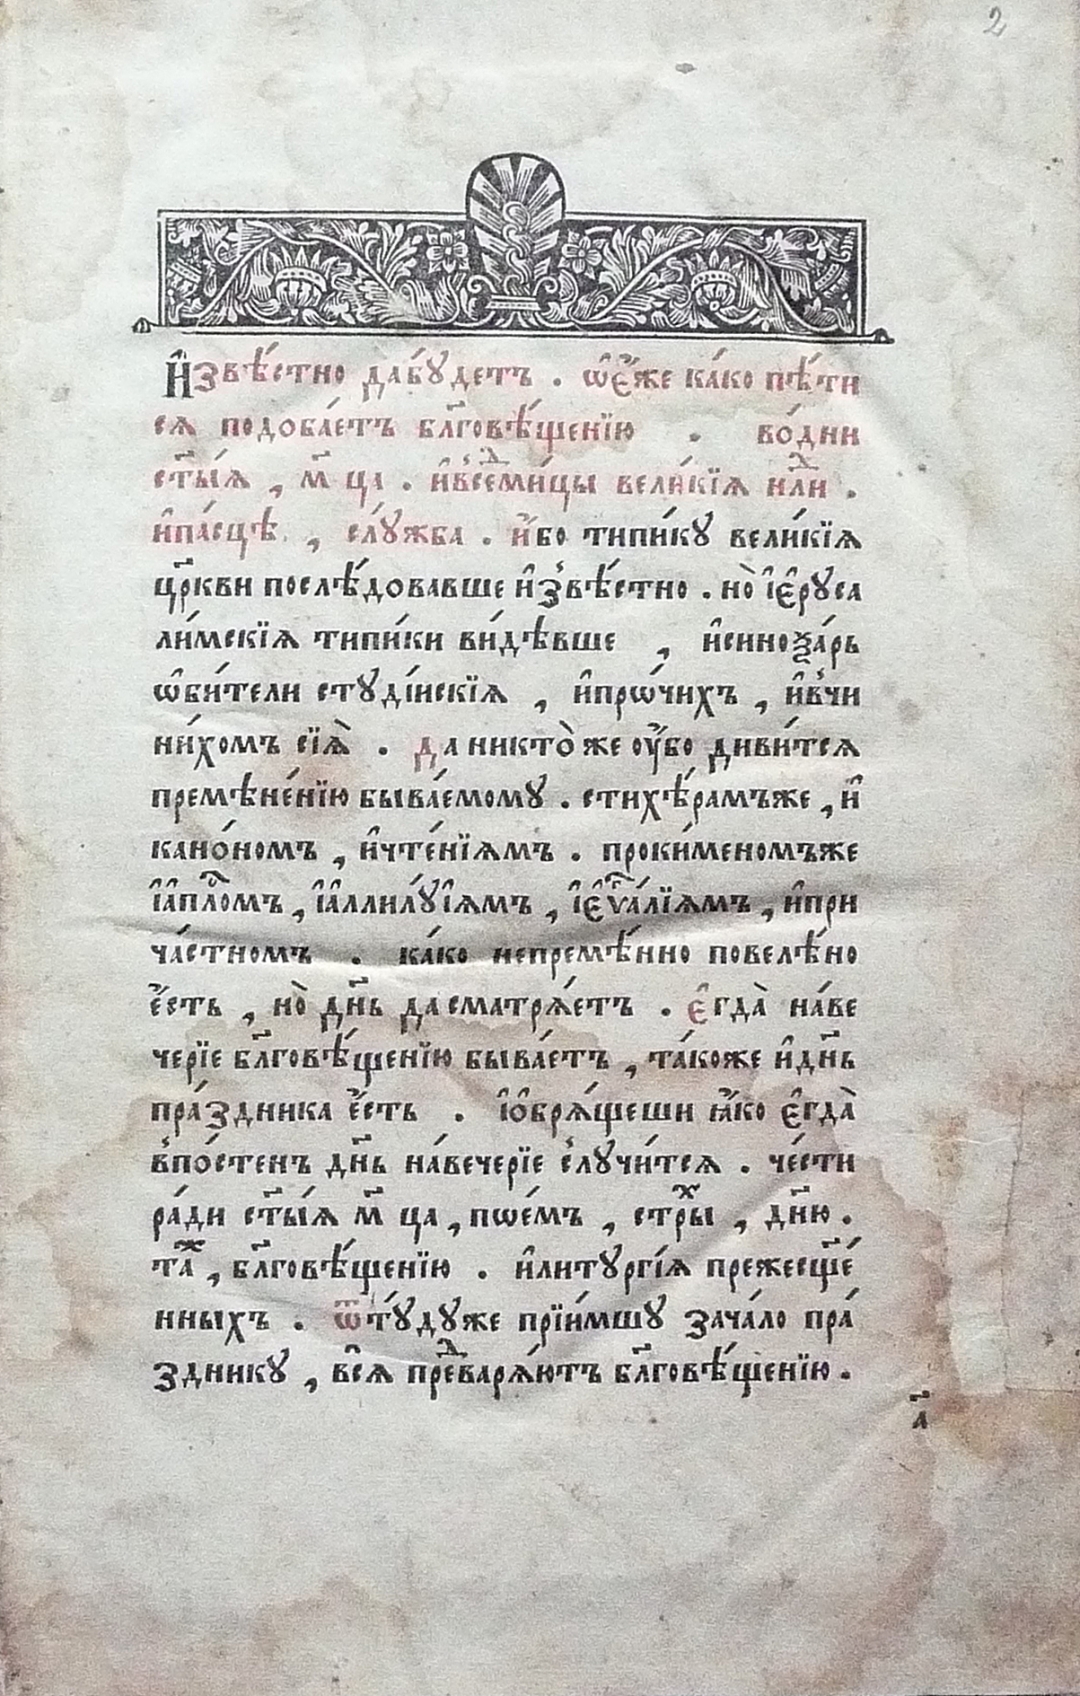 2
И҆звѣ́стно да бу́детъ . ѡ҆ є҆́же ка́ко пѣ́ти
сѧ подоба́етъ бл҃говѣ́щенїю . во́ дни
ст҃ы́ѧ , мⷭ҇ ца . и҆ в̾ седⷨми́цы вели́кїѧ нлⷣи .
и҆ па́сцѣ , слꙋ́жба . и҆́бо типи́кꙋ вели́кїѧ
цр҃кви послѣ́довавше и҆з̾вѣ́стно . но̀ і҆є҆рꙋса
ли́мскїѧ типи́ки ви́дѣвше , и҆ синоѯа́рь
ѡ҆би́тели стꙋді́искїѧ , и҆ прѡ́чихъ , и҆ в̾чи
ни́хомъ сїѧ̀ . да никто̀ же оу҆́бо диви́тсѧ
премѣне́нїю быва́емомꙋ . стихѣ́рамъ же , и҆
кано́номъ , и҆ чте́нїѧмъ . проки́меномъ же
і҆ а҆пⷭ҇ломъ , і҆ а҆ллилꙋ́і҆ѧмъ , і҆ є҆ѵⷢ҇а́лїѧмъ , и҆ при
ча́стномъ . ка́ко непремѣ́нно повелѣ́но
є҆́сть , но̀ дн҃ь да сматрѧ́етъ . є҆гда̀ на́ве
черїе бл҃говѣ́щенїю быва́етъ , та́коже и҆ дн҃ь
пра́здника є҆́сть . і҆ ѻ҆брѧ́щеши ꙗ҆́ко є҆гда̀
в̾ по́стенъ дн҃ь на́вечерїе слꙋчи́тсѧ . че́сти
ра́ди ст҃ы́ѧ мⷭ҇ ца , пѡе́мъ , стⷯры , дн҃ю .
таⷤ , бл҃говѣ́щенїю . и҆ литꙋргі́ѧ прежесщ҃е́
нныхъ . ѿтꙋ́дꙋже прїи́мшꙋ зача́ло пра́
здникꙋ , всѧ̑ преⷣварѧ́ютъ бл҃говѣ́щенїю .
а҃